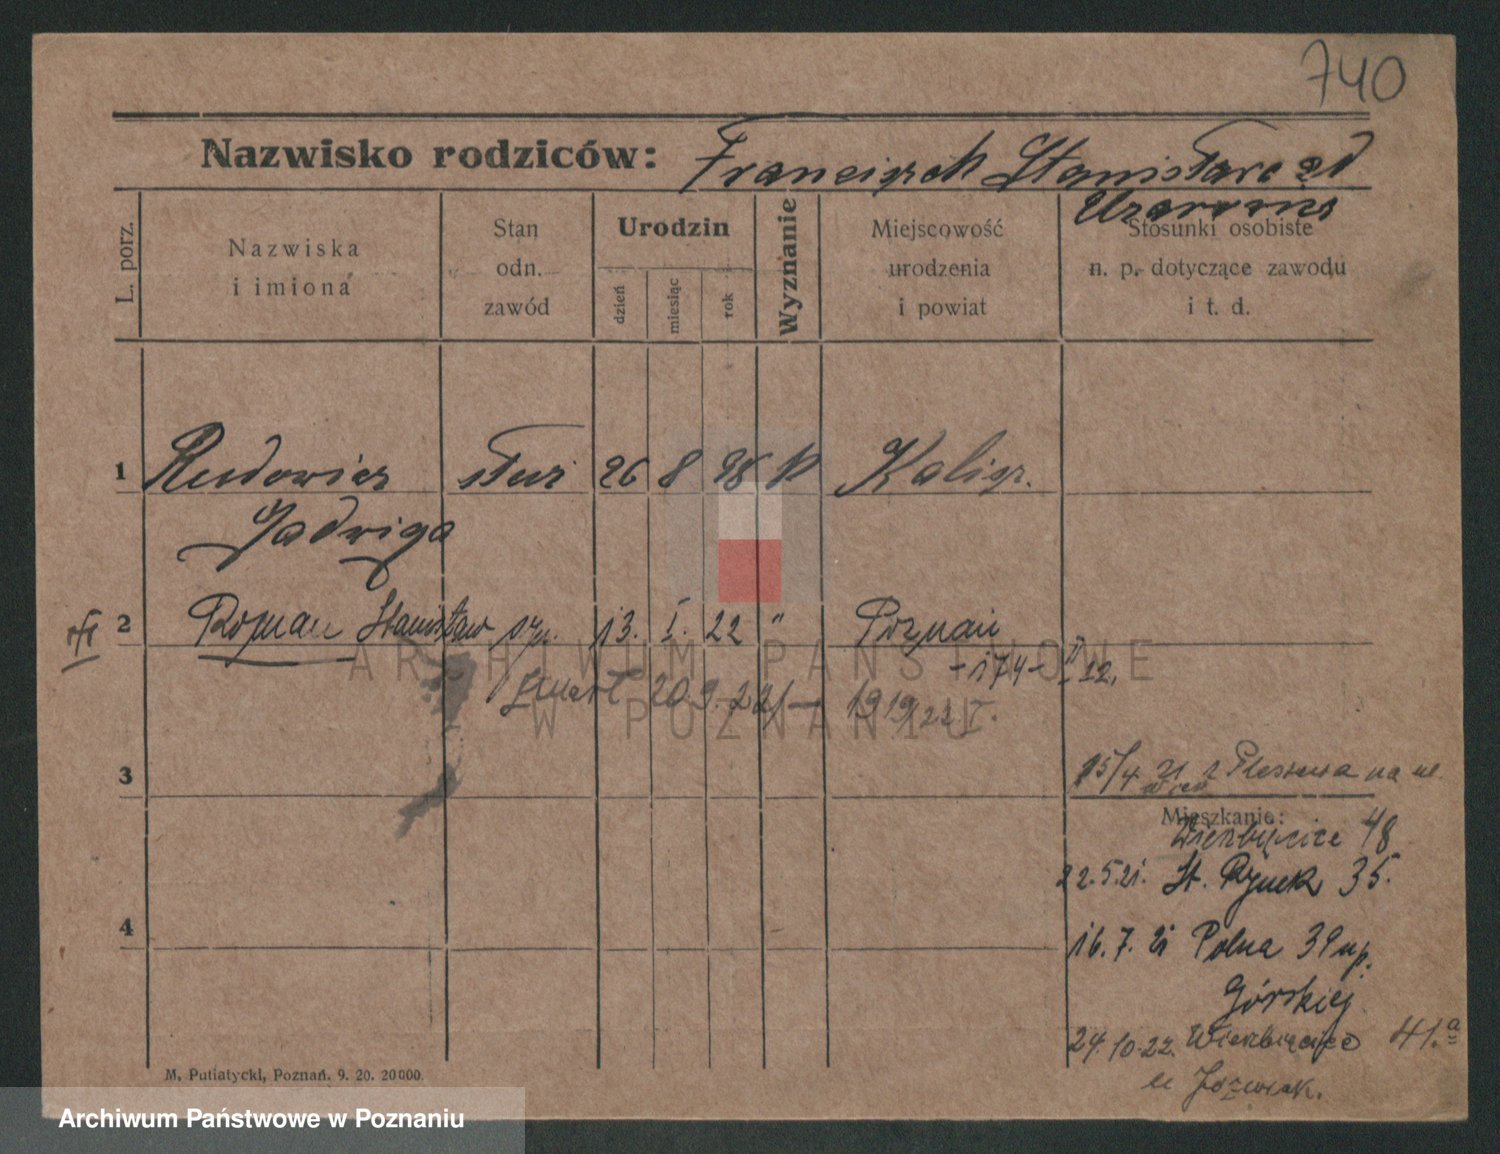 740
Nazwisko rodziców: Franciszek Stanisława
L. porz.
Nazwiska i imiona
Stan odn. zawód
Urodzin
dzień
miesiąc
rok
Wyznanie
Miejscowość urodzenia i powiat
Stosunki osobiste n. p. dotyczące zawodu i t. d.
1 Rudowicz służ 26 8 98 Kalisz.
Jadwiga
2 Roman Stanisław syn. 13. I. 22 " Poznań
-174- II 22.
Zmarł 20.9.22 1919/22 I.
3
15/4 21 z Pleszewa na ul.
Mieszkanie:
Wierzbięcice 48
22.5.21. St. Rynek 35.
4
16.7.21 Polna 39 u p.
Górskiej
24.10.22. Wierzbięcice 41.a
u Jozwiak.
M. Putiatycki, Poznań. 9. 20. 20000.
ARCHIWUM PAŃSTWOWE
W POZNANIU
Archiwum Państwowe w Poznaniu